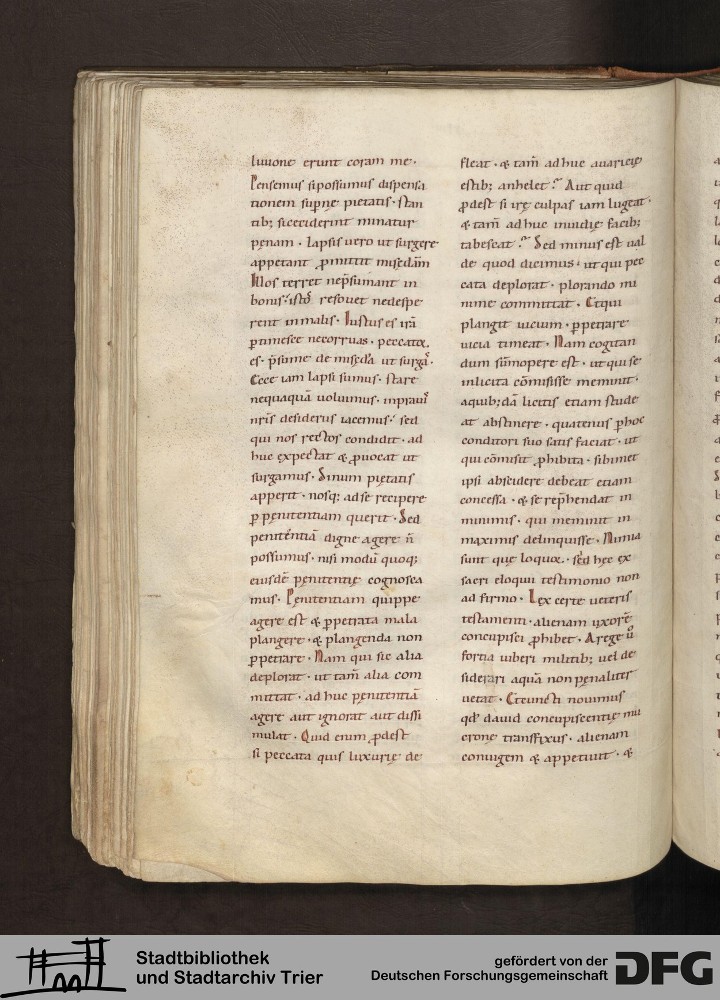 luuione erunt coram me·
Pensemus si possumus dispensa
tionem supnę pietatis· stan
tib; si ceciderint minatur
pęnam· lapsis uero ut surgere
appetant ꝓmittit misc̄dam̄
Illos terret nep̄sumant in
bonis· istos refouet ne despe
rent in malis· Iustus es irā
ꝑtimesce ne corruas· peccatox
es· p̄sume de misc̄da ut surgas·
Ecce iam lapsi sumus· stare
nequaquā uoluimus· in prauis
nr̄is desideriis iacemus· sed
qui nos rectos condidit· ad
huc expectat & ꝓuocat ut
surgamus· Sinum pietatis
apperit· nosq; ad se recipere
ꝑ penitentiam querit· Sed
penitentiā digne agere n̄
possumus· nisi modū quoq;
eiusdē pęnitentię cognosca
mus· Pęnitentiam quippe
agere est & ꝑpetrata mala
plangere· & plangenda non
ꝑpetrare· Nam qui sic alia
deplorat· ut tam̄ alia com
mittat· ad huc pęnitentiā
agere aut ignorat aut dissi
mulat· Quid enim ꝓdest
si peccata quis luxurię de
fleat· & tam̄ ad huc auaricię
estib; anhelet? Aut quid
ꝓdest si irę culpas iam lugeat·
& tam̄ ad huc inuidię facib;
tabescat? Sed minus est ual
de quod dicimus· ut qui pec
cata deplorat· plorando mi
nime committat· Et qui
plangit uicium· ꝑpetrare
uicia timeat· Nam cogitan
dum sum̄opere est· ut qui se
inlicita cōmisisse meminit·
a quib; dā licitis etiam stude
at abstinere· quatenus ꝑ hoc
conditori suo satis faciat· ut
qui cōmisit ꝓhibita· sibimet
ipsi abscidere debeat etiam
concessa· & se rep̄hendat in
minimis· qui meminit in
maximis delinquisse· Nimia
sunt que loquor· sed hęc ex
sacri eloqui testimonio non
ad firmo· Lex certe ueteris
testamenti· alienam uxorē
concupisci ꝓhibet· A rege ů
fortia iuberi militib; uel de
siderari aquā non penaliter
uetat· Et cuncti nouimus
qđ dauid concupiscentię mu
crone transfixus· alienam
coniugem & appetiuit· &
Stadtbibliothek
und Stadtarchiv Trier
gefördert von der
Deutschen Forschungsgemeinschaft
DFG